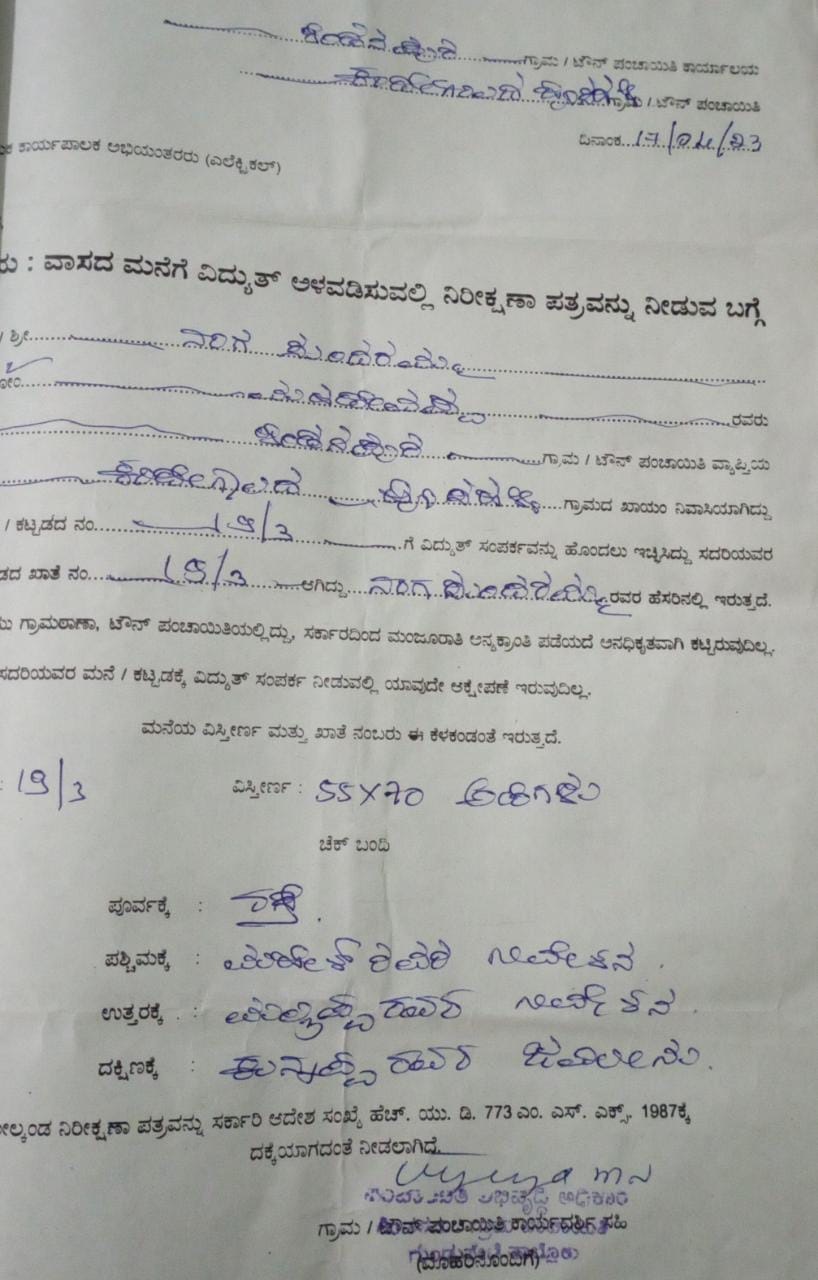 ಗ್ರಾಮ / ಟೌನ್ ಪಂಚಾಯಿತಿ ಕಾರ್ಯಾಲಯ
ಗ್ರಾಮ / ಟೌನ್ ಪಂಚಾಯಿತಿ
ದಿನಾಂಕ...17/04/23
ಕಾರ್ಯಪಾಲಕ ಅಭಿಯಂತರರು (ಎಲೆಕ್ಟ್ರಿಕಲ್)
: ವಾಸದ ಮನೆಗೆ ವಿದ್ಯುತ್ ಅಳವಡಿಸುವಲ್ಲಿ ನಿರೀಕ್ಷಣಾ ಪತ್ರವನ್ನು ನೀಡುವ ಬಗ್ಗೆ
/ ಶ್ರೀ...... ನಾಗ ಸುಂದರಮ್ಮ
ಮಹದೇವಪ್ಪ ರವರು
ಗ್ರಾಮ / ಟೌನ್ ಪಂಚಾಯಿತಿ ವ್ಯಾಪ್ತಿಯ
ಗ್ರಾಮದ ಖಾಯಂ ನಿವಾಸಿಯಾಗಿದ್ದು
/ ಕಟ್ಟಡದ ನಂ...... 19/3 ......ಗೆ ವಿದ್ಯುತ್ ಸಂಪರ್ಕವನ್ನು ಹೊಂದಲು ಇಚ್ಛಿಸಿದ್ದು ಸದರಿಯವರ
ಖಾತೆ ನಂ...... 19/3 ......ಆಗಿದ್ದು...... ನಾಗ ಸುಂದರಮ್ಮ ರವರ ಹೆಸರಿನಲ್ಲಿ ಇರುತ್ತದೆ.
ಗ್ರಾಮಠಾಣಾ, ಟೌನ್ ಪಂಚಾಯಿತಿಯಲ್ಲಿದ್ದು, ಸರ್ಕಾರದಿಂದ ಮಂಜೂರಾತಿ ಅನ್ಯಕ್ರಾಂತಿ ಪಡೆಯದೆ ಅನಧಿಕೃತವಾಗಿ ಕಟ್ಟಿರುವುದಿಲ್ಲ.
ಸದರಿಯವರ ಮನೆ / ಕಟ್ಟಡಕ್ಕೆ ವಿದ್ಯುತ್ ಸಂಪರ್ಕ ನೀಡುವಲ್ಲಿ ಯಾವುದೇ ಆಕ್ಷೇಪಣೆ ಇರುವುದಿಲ್ಲ.
ಮನೆಯ ವಿಸ್ತೀರ್ಣ ಮತ್ತು ಖಾತೆ ನಂಬರು ಈ ಕೆಳಕಂಡಂತೆ ಇರುತ್ತದೆ.
: 19/3 ವಿಸ್ತೀರ್ಣ : 55x70 ಅಡಿಗಳು
ಚೆಕ್ ಬಂದಿ
ಪೂರ್ವಕ್ಕೆ : ರಸ್ತೆ.
ಪಶ್ಚಿಮಕ್ಕೆ : ಮಹೇಶ್ ರವರ ನಿವೇಶನ.
ಉತ್ತರಕ್ಕೆ : ಮಲ್ಲಪ್ಪ ರವರ ನಿವೇಶನ.
ದಕ್ಷಿಣಕ್ಕೆ : ರವರ ಜಮೀನು.
ನಿರೀಕ್ಷಣಾ ಪತ್ರವನ್ನು ಸರ್ಕಾರಿ ಆದೇಶ ಸಂಖ್ಯೆ ಹೆಚ್. ಯು. ಡಿ. 773 ಎಂ. ಎಸ್. ಎಕ್ಸ್. 1987ಕ್ಕೆ
ದಕ್ಕೆಯಾಗದಂತೆ ನೀಡಲಾಗಿದೆ.
ಪಂಚಾಯಿತಿ ಅಭಿವೃದ್ಧಿ ಅಧಿಕಾರಿ
ಗ್ರಾಮ / ಟೌನ್ ಪಂಚಾಯಿತಿ ಕಾರ್ಯದರ್ಶಿ ಸಹಿ
(ಮೊಹರಿನೊಂದಿಗೆ)